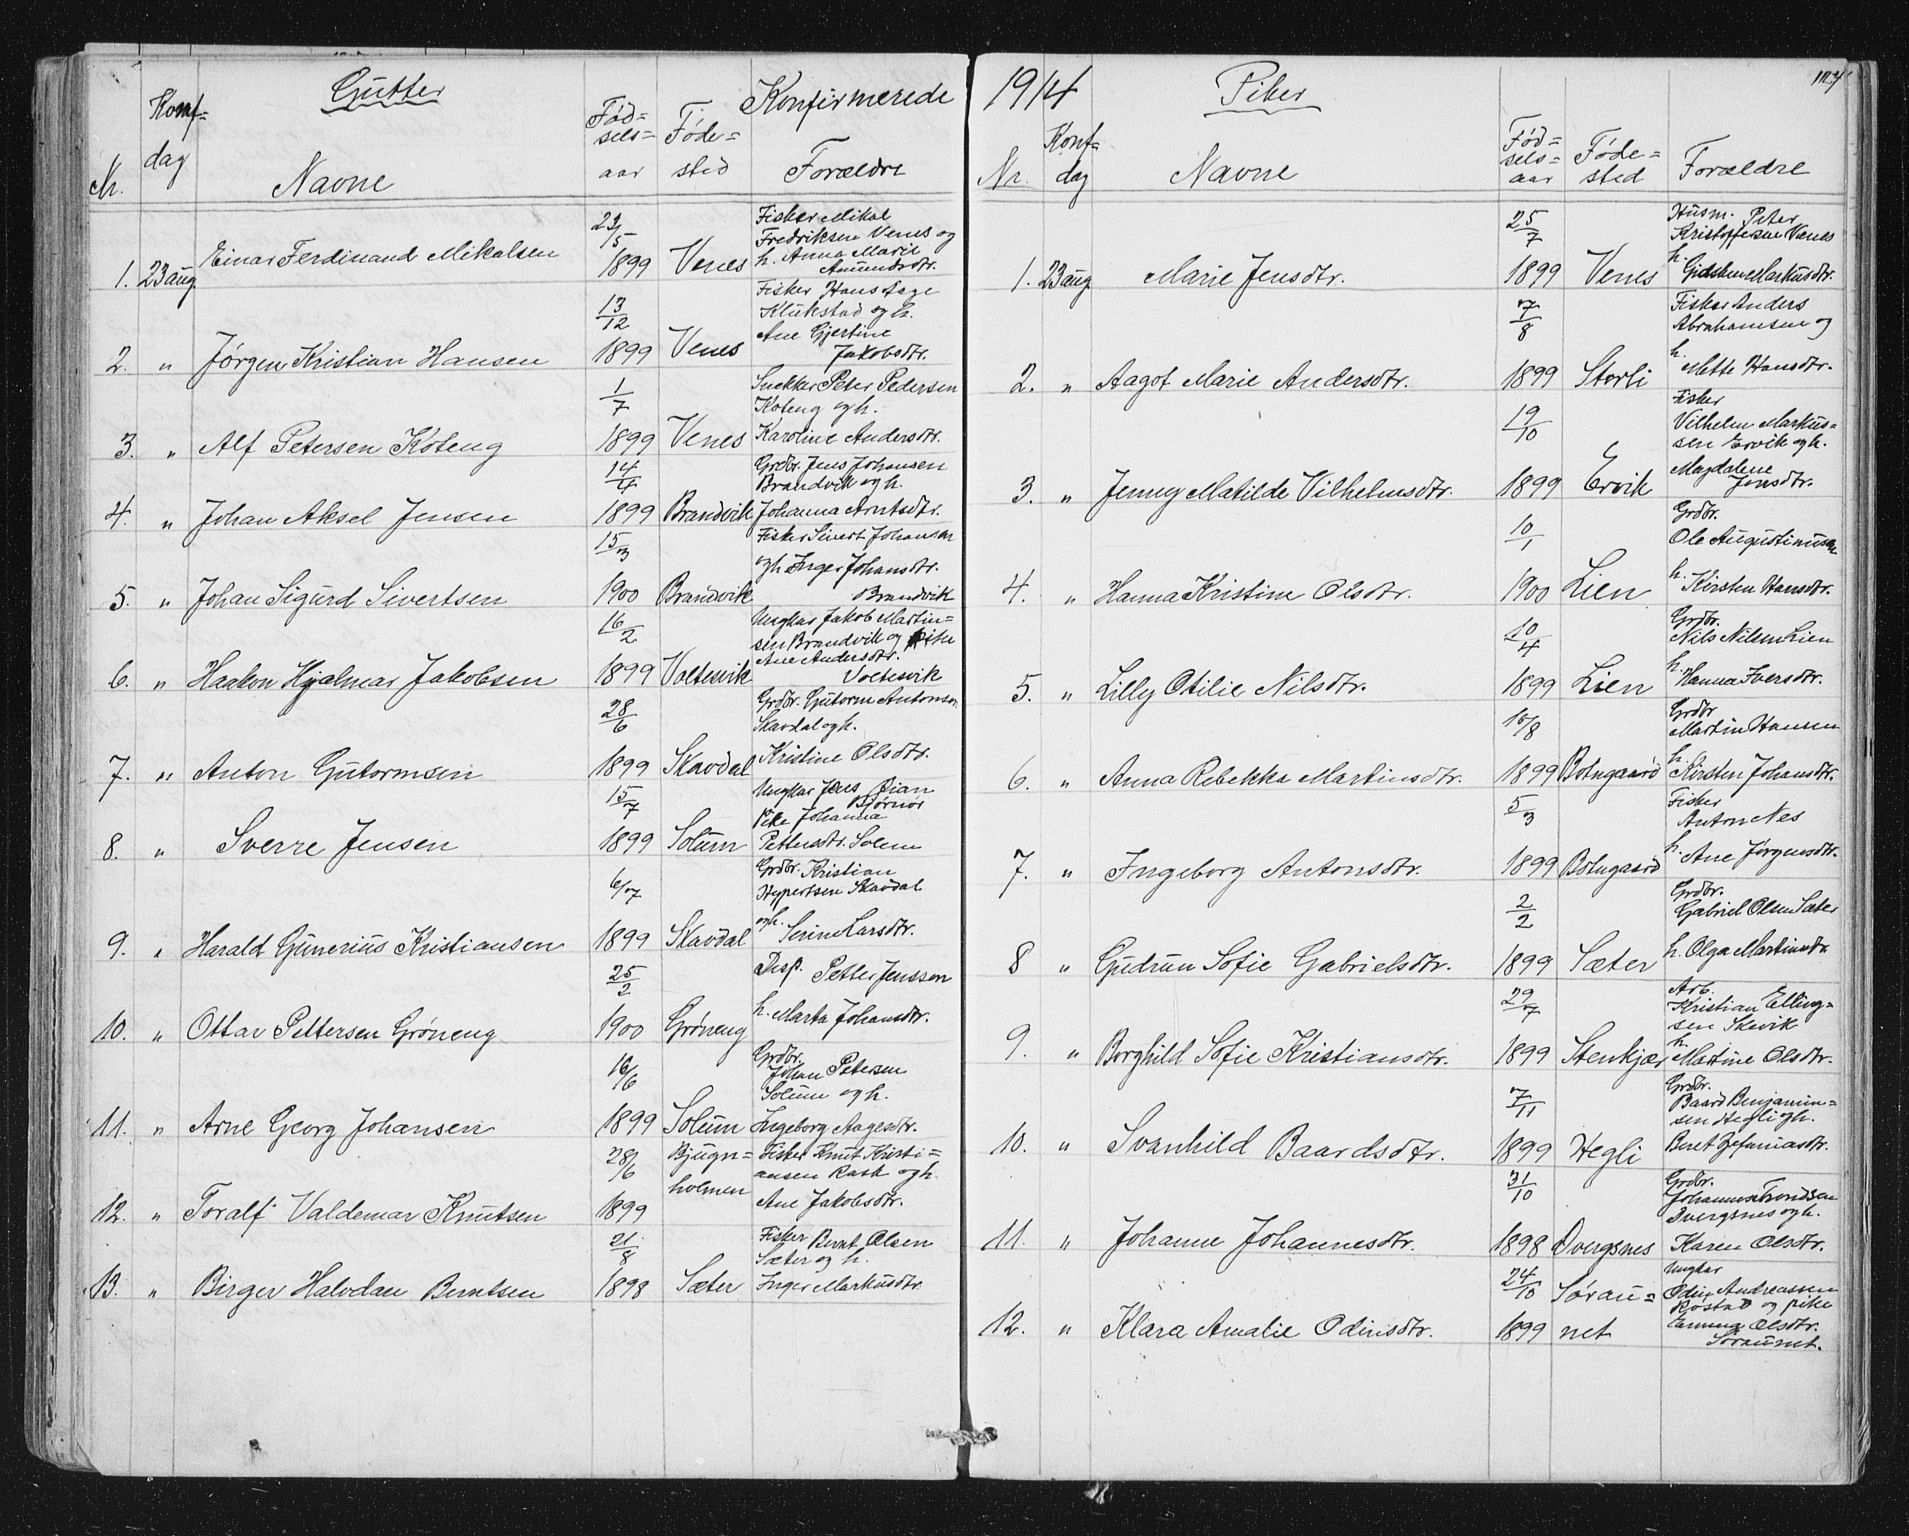 Gutter
Konfirmerede
Nr.
Konf=
dag
Navne
Fød=
sels=
aar
Føde=
sted
Forældre
1. 23 aug Einar Ferdinand Mikalsen 23/5 1899 Venes
Fisker Mikal
Fredriksen Venes og
h. Anna Marie
Amundsdtr.
2. " Jørgen Kristian Hansen 13/12 1899 Venes
Fisker Hans Aage
Klukstad og h.
Ane Gjertine
Jakobsdtr.
3. " Alf Petersen Koteng 1/7 1899 Venes
Snekker Peter Pedersen
Koteng og h.
Karoline Andersdtr.
4. " Johan Aksel Jensen 14/4 1899 Brandvik
Grdbr. Jens Johansen
Brandvik og h.
Johanna Arntsdtr.
5. " Johan Sigurd Sivertsen 15/3 1900 Brandvik
Fisker Sivert Johansen
og h. Inger Johansdtr.
Brandvik
6. " Haakon Hjalmar Jakobsen 16/2 1899 Voltesvik
Ungkar Jakob Martin=
sen Brandvik og pike
Ane Andersdtr.
Voltesvik
7. " Anton Gutormsen 28/6 1899 Skavdal
Grdbr. Gutorm Antonsen
Skavdal og h.
Kristine Olsdtr.
8. " Sverre Jensen 15/7 1899 Solum
Ungkar Jens Øian
Bjørnør
Pike Johanna
Pettersdtr. Solum
9. " Harald Gunerius Kristiansen 6/7 1899 Skavdal
Grdbr. Kristian
Skavdal
og h. Serine Larsdtr.
10. " Ottar Pettersen Grøneng 25/2 1900 Grøneng
Disp. Petter Jenssen
h. Marta Johansdtr.
11. " Arne Georg Johansen 16/6 1899 Solum
Grdbr.
Johan Petersen
Solum og h.
Ingeborg Aagesdtr.
12. " Toralf Valdemar Knutsen 28/6 1899 Bjugn=
holmen
Fisker Knut Kristi=
ansen Rask og h.
Ane Jakobsdtr.
13. " Birger Halvdan Berntsen 21/8 1898 Sæter
Fisker Bernt Olsen
Sæter og h.
Inger Markusdtr.
1914
Piker
Nr.
Konf=
dag
Navne
Fød=
sels=
aar
Føde=
sted
Forældre
1. 23 aug Marie Jensdtr. 25/7 1899 Venes
Husm. Peter
Kristoffersen Venes
h. Markusdtr.
2. " Aagot Marie Andersdtr. 7/8 1899 Storli
Fisker Anders
Abrahamsen og
h. Mette Hansdtr.
3. " Jenny Matilde Vilhelmsdtr. 19/10 1899 Ervik
Fisker
Vilhelm Markus=
sen Ervik og h.
Magdalene
Jensdtr.
4. " Hanna Kristine Olsdtr. 10/1 1900 Lien
Grdbr.
Ole Augustinusen
h. Kirsten Hansdtr.
5. " Lilly Otilie Nilsdtr. 20/4 1899 Lien
Grdbr.
Nils Nilsen Lien
h. Hanna Iversdtr.
6. " Anna Rebekka Martinsdtr. 10/8 1899 Botngaard
Grdbr
Martin Hansen
h. Kirsten Johansdtr.
7. " Ingeborg Antonsdtr. 5/3 1899 Botngaard
Fisker
Anton Nes
h. Ane Jørgensdtr.
8 " Gudrun Sofie Gabrielsdtr. 2/2 1899 Sæter
Grdbr.
Gabriel Olsen Sæter
h. Olga Martinsdtr
9. " Borghild Sofie Kristiansdtr. 29/7 1899 Stenkjær
Arb.
Kristian Elling=
sen Skevik
h. Martine Olsdtr.
10. " Svanhild Baardsdtr. 7/11 1899 Hegli
Grdbr.
Baard Benjamin=
sen Hegli og h.
Beret Zefaniasdtr.
11. " Johanne Johannesdtr. 31/10 1898 Dvergsnes
Grdbr.
Johannes Trondsen
Dvergsnes og h.
Karen Olsdtr.
12. " Klara Amalie Odinsdtr. 24/10 1899 Sørau=
net
Ungkar
Odin Andreassen
Rostad og pike
Emma Olsdtr.
Søraunet.